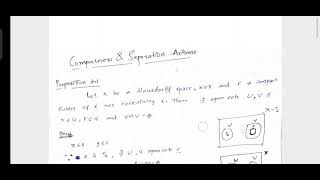 Compactness & Seperation Axioms
Proposition
Let X be a Hausdorff space, x∈X and F a compact
subset of X not containing x. Then ∃ open sets U, V ∋
x∈U, F⊂V and U∩V = ϕ
Proof
x∈X y∈F
∵ X is T₂, ∃ U, V open sets